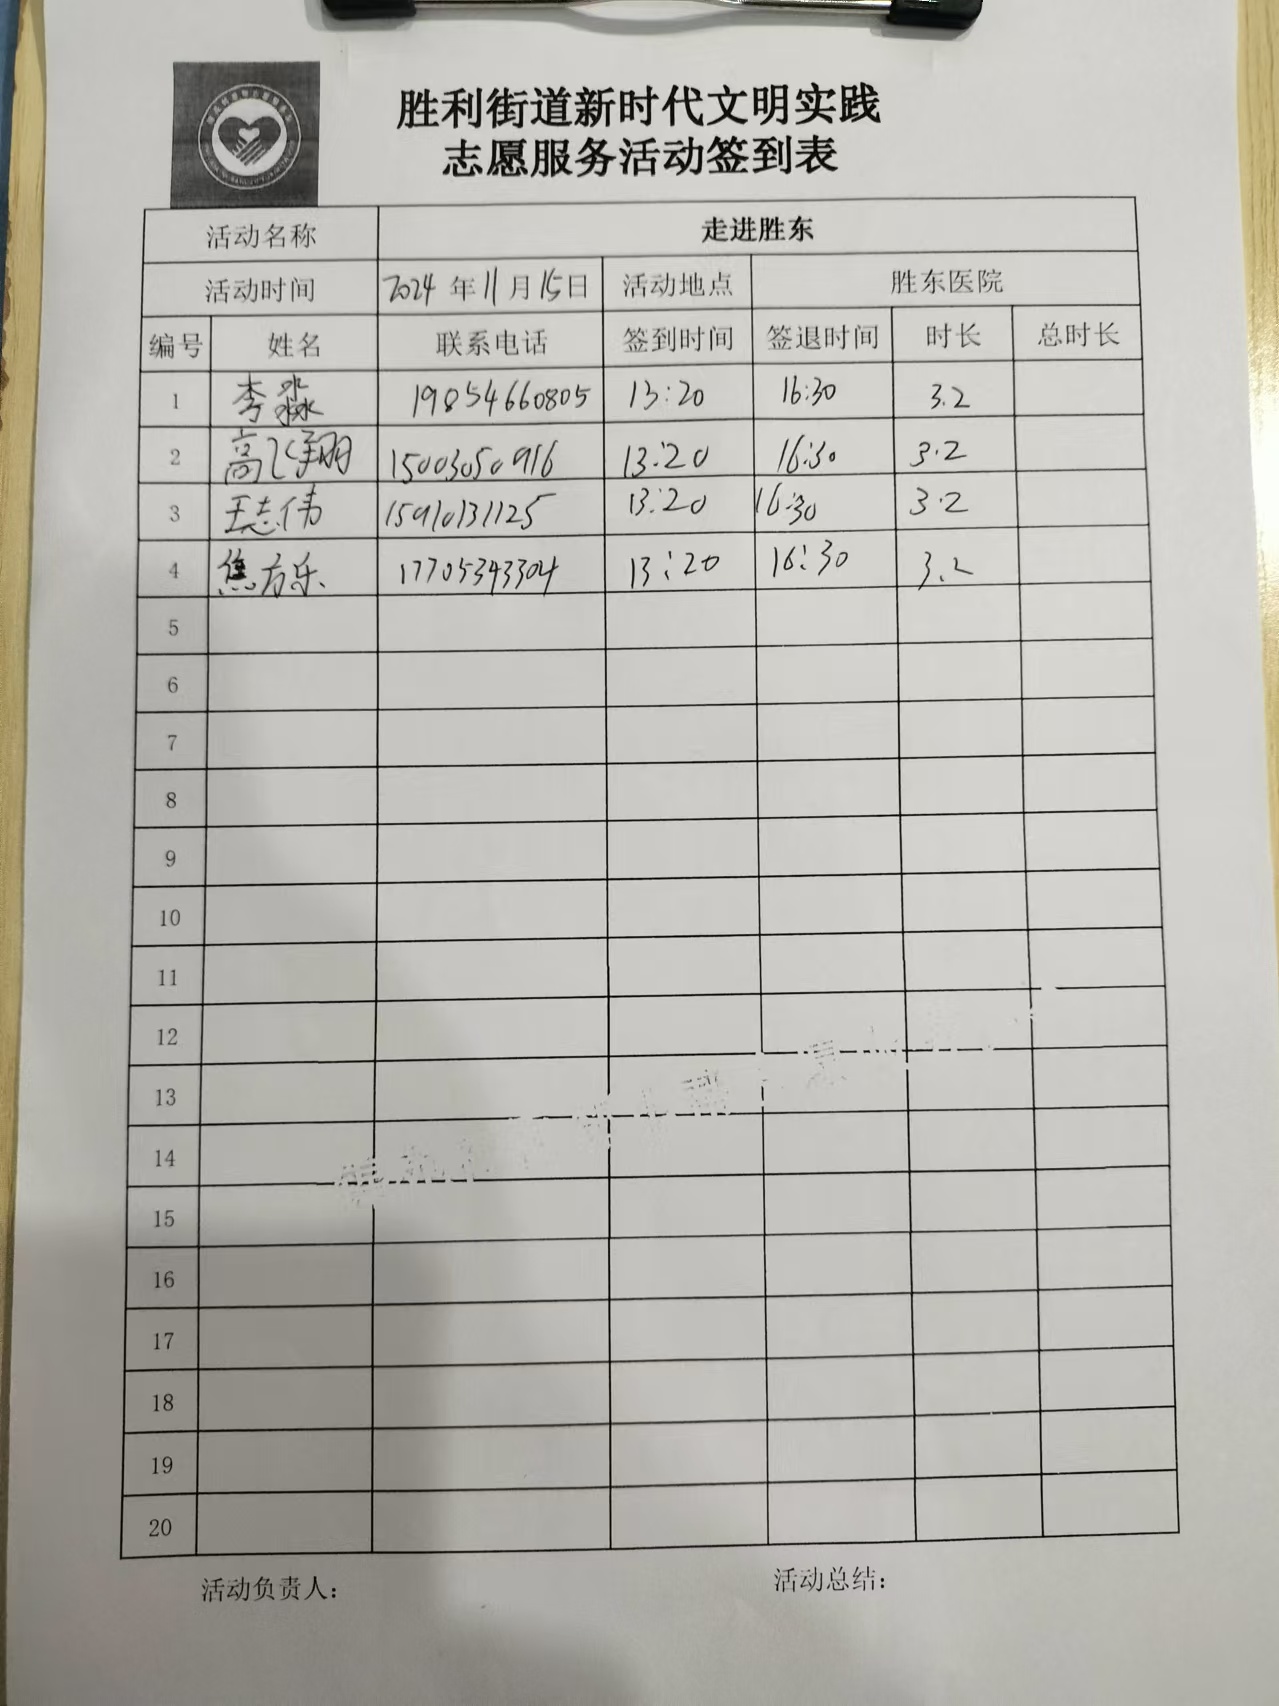 胜利街道新时代文明实践
志愿服务活动签到表
活动名称 走进胜东
活动时间 2024年11月15日 活动地点 胜东医院
编号 姓名 联系电话 签到时间 签退时间 时长 总时长
1 李淼 19854660805 13:20 16:30 3.2
2 高飞翔 15003050916 13:20 16:30 3.2
3 王志伟 15910131125 13:20 16:30 3.2
4 焦方乐 17705343304 13:20 16:30 3.2
5
6
7
8
9
10
11
12
13
14
15
16
17
18
19
20
活动负责人: 活动总结: